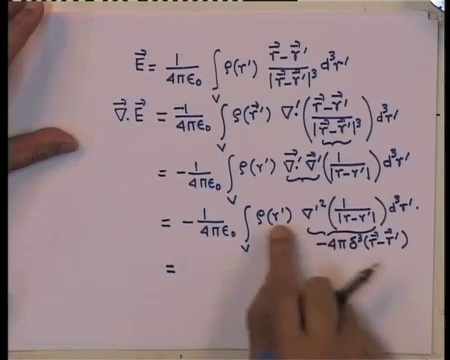 E⃗ = 1/4πε₀ ∫_V ρ(r') (r⃗ - r⃗')/|r⃗ - r⃗'|³ d³r'
∇⃗·E⃗ = -1/4πε₀ ∫_V ρ(r⃗') ∇⃗'·((r⃗ - r⃗')/|r⃗ - r⃗'|³) d³r'
= - 1/4πε₀ ∫_V ρ(r') ∇⃗'·∇⃗'(1/|r⃗ - r⃗'|) d³r'
= - 1/4πε₀ ∫_V ρ(r') ∇'²(1/|r - r'|) d³r'.
-4πδ³(r⃗ - r⃗')
=